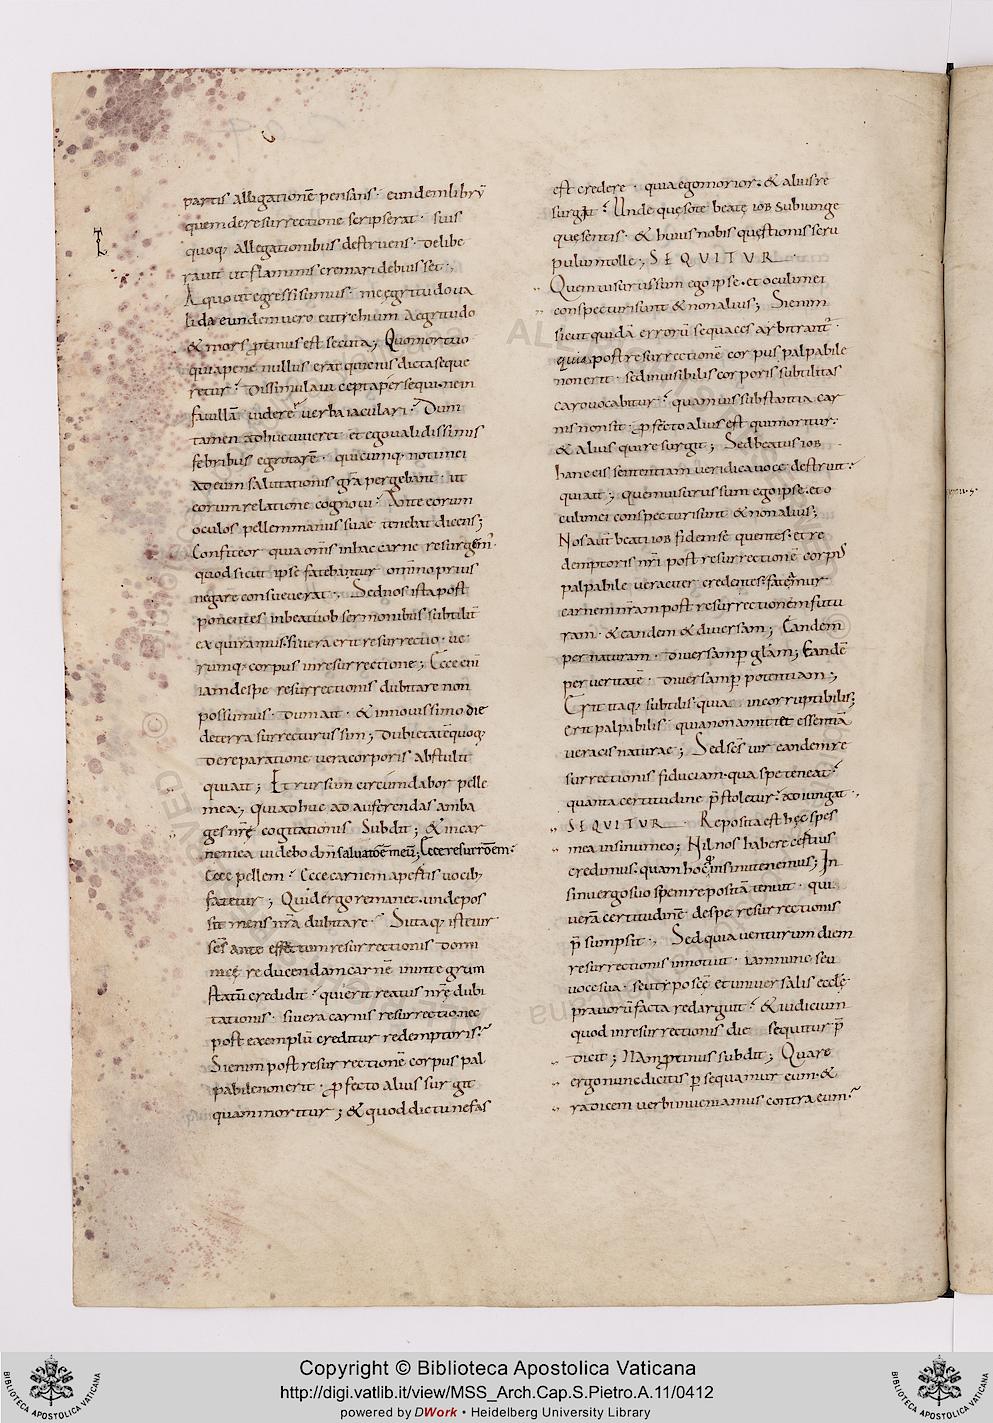 partis alligationē pensans· eundem librū
quem de resurrectione scripserat· suis
quoq; allegationibus destruens· delibe
rauit ut flammis cremari debuisset·,
A quo ut egressi sumus· me ęgritudo ua
lida eundem uero eutychium aegritudo
& mors ꝓtinus est secuta; Quo mortuo
quia pene nullus erat qui eius dicta seque
retur· dissimulaui cepta persequi· ne in
fauillā uiderer uerba iaculari· Dum
tamen adhuc uiueret et ego ualidissimis
febribus egrotarē· quicumq· noti mei
ad eum salutationis gr̄a pergebant· ut
eorum relatione cognoui· Ante eorum
oculos pellem manus suae tenebat dicens;
Confiteor quia om̄s in hac carne resurgem̄·
quod sicut ipse fatebatur omnino prius
negare consueuerat·, Sed nos ista post
ponentes in beati iob sermonibus subtilit̄
exquiramus· si uera erit resurrectio· ue
rumq· corpus in resurrectione; Ecce eni
iam de spe resurrectionis dubitare non
possumus· dum ait· & in nouissimo die
de terra surrecturus sum; dubietatē quoq;
de reparatione uera corporis abstulit
qui ait; Et rursum circumdabor pelle
mea; Qui adhuc ad auferendas amba
ges nr̄ę cogitationis Subdit; & in car
ne mea uidebo dm̄ saluatorē meū; Ecce resurrectiōem:
Ecce pellem· Ecce carnem apertis uocib;
fatetur; Quid ergo remanet· unde pos
sit mens nr̄a dubitare· Si itaq; iste uir
sc̄s ante effectum resurrectionis domi
nicę reducendam carnē in integrum
statū credidit· quis erit reatus nr̄ę dubi
tationis· si uera carnis resurrectio nec
post exemplū creditur redemptoris·
Si enim post resurrectionē corpus pal
pabile non erit· ꝓfecto alius surgit
quam moritur; & quod dictu nefas
est credere· quia ego morior· & alius re
surgit· Unde quęso te beatę iob subiunge
que sentis· & huius nobis quęstionis scru
pulum tolle; SEQUITUR
Quem uisurus sum ego ipse· et oculi mei
conspecturi sunt & non alius; Si enim
sicut quidā errorū sequaces arbitrant̄·
quia post resurrectionē corpus palpabile
non erit· sed inuisibilis corporis subtilitas
caro uocabitur· quamuis substantia car
nis non sit· ꝓfecto alius est qui moritur·
& alius qui resurgit; Sed beatus iob
hanc eis sententiam ueridica uoce destruit·
qui ait; quem uisurus sum ego ipse· et o
culi mei conspecturi sunt & non alius;
Nos aut̄ beati iob fidem sequentes· et re
demptoris nr̄i post resurrectionē corpus
palpabile ueraciter credentes· fatemur
carnem nr̄am post resurrectionem futu
ram· & eandem & diuersam; Eandem
per naturam· diuersam p̱ glām; Eandē
per ueritatē· diuersam p̱ potentiam;
Erit itaq; subtilis quia incorruptibilis;
erit palpabilis· quia non amittet essentiā
ueracis naturae; Sed sc̄s uir eandem re
surrectionis fiduciam· qua spe teneat·
quanta certitudine p̄stoletur· adiungat·,
SEQUITUR Reposita est hęc spes
mea in sinu meo; Nil nos habere certius
credimus· quam hoc quod in sinu tenemus; In
sinu ergo suo spem repositā tenuit· qui
uerā certitudinē de spe resurrectionis
p̄sumpsit·, Sed quia uenturum diem
resurrectionis innotuit· iam nunc seu
uoce sua· seu typo scę̄ et uniuersalis ecclę̄
prauorū facta redarguit· & iudicium
quod in resurrectionis die sequitur p̄
dicit; Nam ꝓtinus subdit; Quare
ergo nunc dicitis p̱sequamur eum· &
radicem uerbi inueniamus contra eum·
Copyright © Biblioteca Apostolica Vaticana
http://digi.vatlib.it/view/MSS_Arch.Cap.S.Pietro.A.11/0412
powered by DWork • Heidelberg University Library
BIBLIOTECA APOSTOLICA VATICANA
BIBLIOTECA APOSTOLICA VATICANA